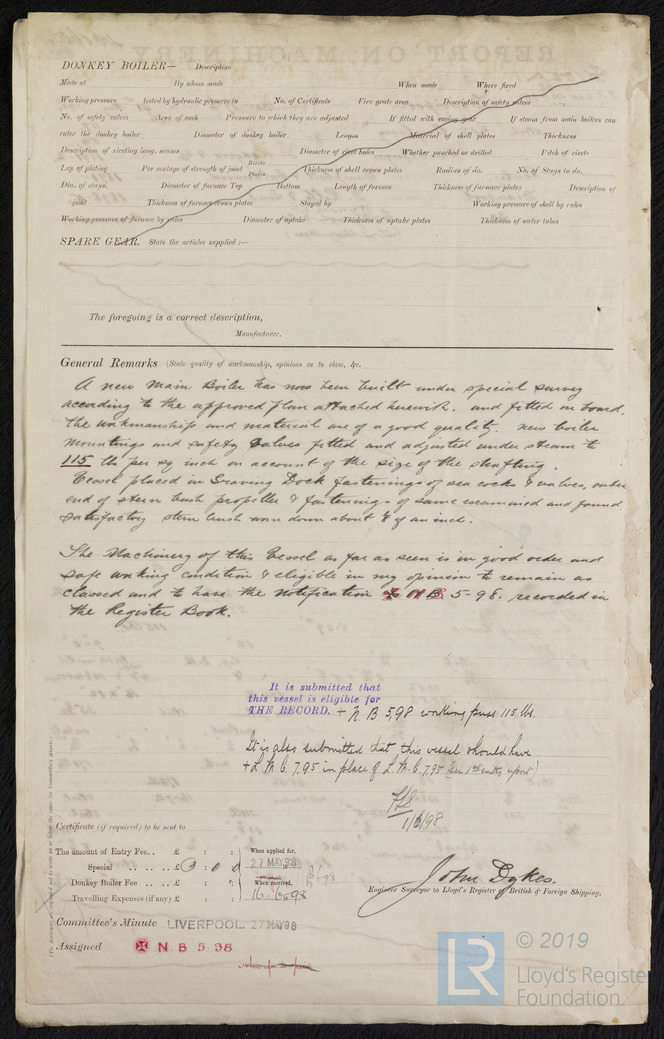 DONKEY BOILER— Description
Made at By whom made When made Where fixed
Working pressure tested by hydraulic pressure to No. of Certificate Fire grate area Description of safety valves
No. of safety valves Area of each Pressure to which they are adjusted If fitted with easing gear If steam from main boilers can
enter the donkey boiler Diameter of donkey boiler Length Material of shell plates Thickness
Description of riveting long. seams Diameter of rivet holes Whether punched or drilled Pitch of rivets
Lap of plating Per centage of strength of joint Rivets Plates Thickness of shell crown plates Radius of do. No. of Stays to do.
Dia. of stays. Diameter of furnace Top Bottom Length of furnace Thickness of furnace plates Description of
joint Thickness of furnace crown plates Stayed by Working pressure of shell by rules
Working pressure of furnace by rules Diameter of uptake Thickness of uptake plates Thickness of water tubes
SPARE GEAR. State the articles supplied :—
The foregoing is a correct description,
Manufacturer.
General Remarks (State quality of workmanship, opinions as to class, &c.
A new Main Boiler has now been built under special survey
according to the approved plan attached herewith. and fitted on board,
the workmanship and material are of a good quality. new boiler
mountings and safety valves fitted and adjusted under steam to
115 lbs per sq inch on account of the size of the shafting.
Vessel placed in Graving Dock fastenings of sea cocks & valves, outer
end of stern bush propeller & fastenings of same examined and found
satisfactory stern bush worn down about of an inch.
The Machinery of this Vessel as far as seen is in good order and
safe working condition & eligible in my opinion to remain as
classed and to have the notification N B 5-98. recorded in
the Register Book.
It is submitted that
this vessel is eligible for
THE RECORD. + N B 5,98 working press 115 lbs.
It is also submitted that this vessel should have
+ L. M. C. 7,95 in place of L. M. C. 7,95 (see 1st entry report)
1/6/98
Certificate (if required) to be sent to
The amount of Entry Fee.. £ : :
Special .. .. .. £ 3 : 0 : 0
Donkey Boiler Fee .. .. £ : :
Travelling Expenses (if any) £ : :
When applied for,
27 MAY 98
When received,
16. 6. 98
John Dykes.
Engineer Surveyor to Lloyd's Register of British & Foreign Shipping.
Committee's Minute LIVERPOOL. 27 MAY 98
Assigned N B 5 98
LR © 2019
Lloyd's Register
Foundation.